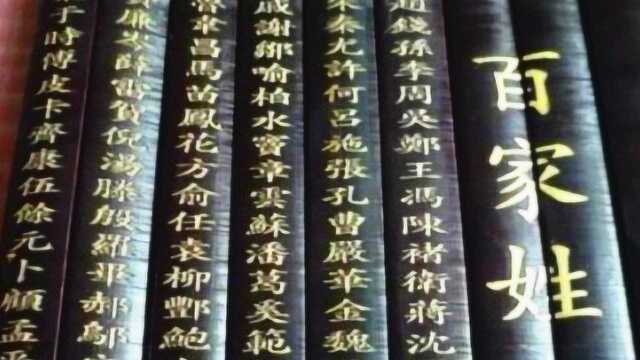 百家姓
趙錢孫李周吳鄭王馮陳褚衛蔣沈
朱秦尤許何呂施張孔曹嚴華金魏
戚謝鄒喻柏水竇章雲蘇潘葛奚範
魯韋昌馬苗鳳花方俞任袁柳酆鮑
費廉岑薛雷賀倪湯滕殷羅畢郝鄔
樂于時傅皮卞齊康伍餘元卜顧孟平